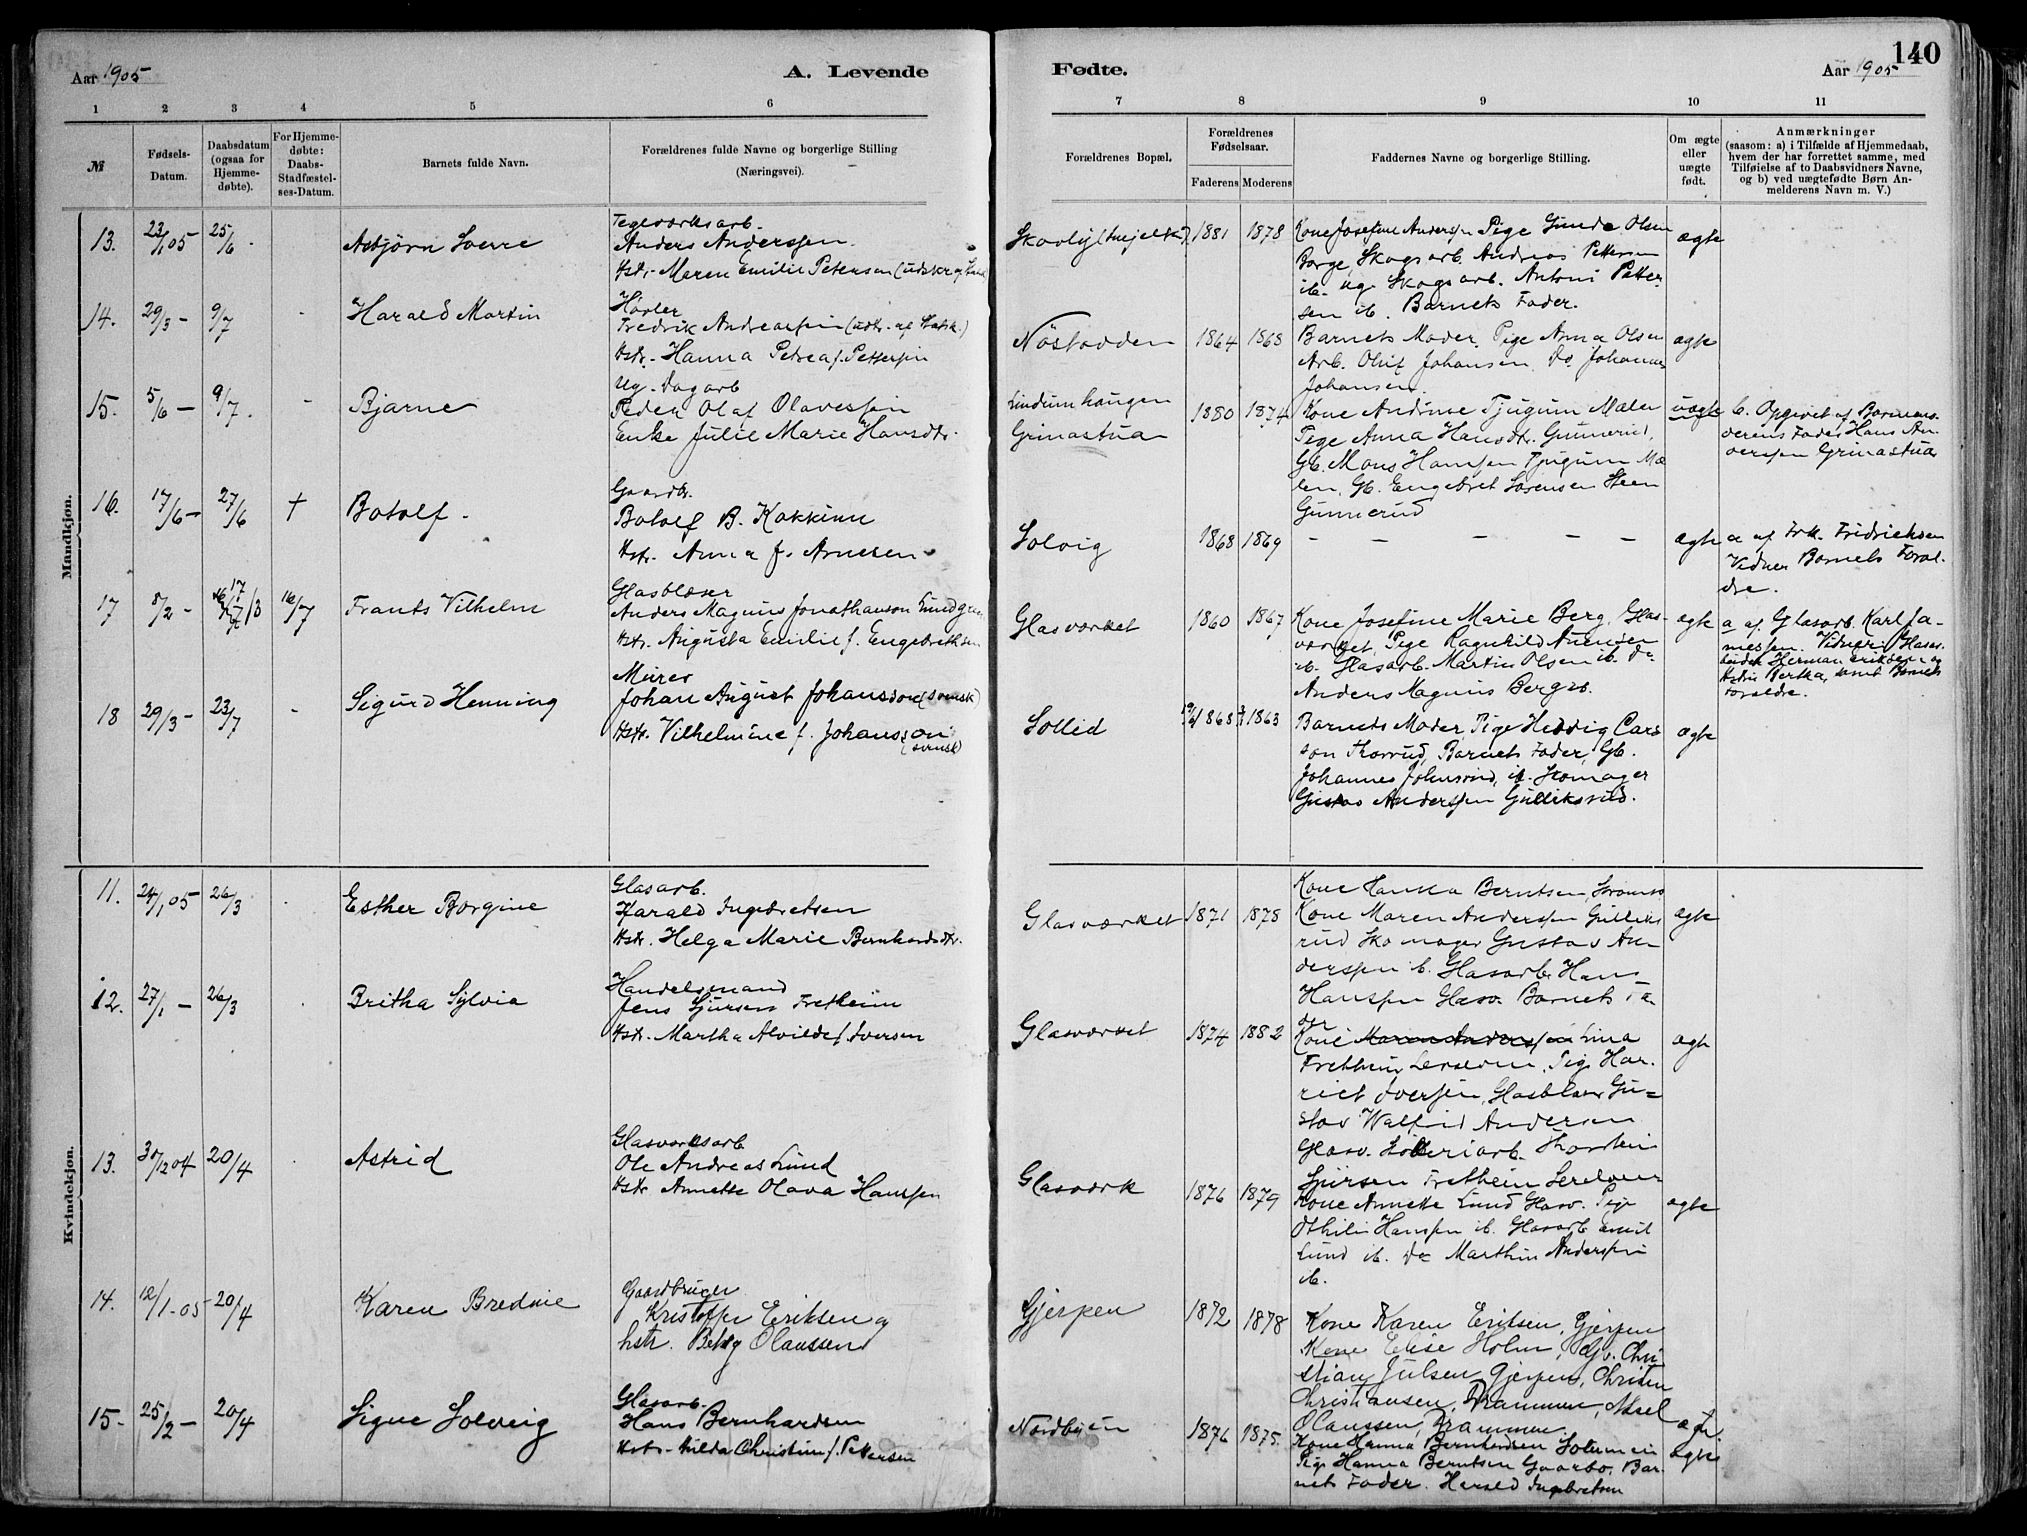 Aar 1905
A. Levende
Fødte.
Aar 1905
140
1 2 3 4 5 6 7 8 9 10 11
№
Fødsels-
Datum.
Daabsdatum
(ogsaa for
Hjemme-
døbte).
For Hjemme-
døbte:
Daabs-
Stadfæstel-
ses-Datum.
Barnets fulde Navn.
Forældrenes fulde Navne og borgerlige Stilling
(Næringsvei).
Forældrenes Bopæl.
Forældrenes
Fødselsaar.
Faderens
Moderens
Faddernes Navne og borgerlige Stilling.
Om ægte
eller
uægte
født.
Anmærkninger
(saasom: a) i Tilfælde af Hjemmedaab,
hvem der har forrettet samme, med
Tilføielse af to Daabsvidners Navne,
og b) ved uægtefødte Børn An-
melderens Navn m. V.)
Mandkjøn.
13. 23/1 05 25/6 Asbjørn Sverre
Teglværksarb.
Anders Anderssen
Hstr. Maren Emilie Petersen
1881 1878
Kone Josefine Anderssen Pige Gunda Olsen
Borge, Skogsarb. Andreas Pettersen
ib. ug. Skogsarb. Antoni Petter-
sen ib. Barnets Fader.
ægte
14. 29/3 - 9/7 - Harald Martin
Høvler
Fredrik Andreassen
Hstr. Hanna Petrea f. Pettersen
Nøstodden 1864 1868
Barnets Moder, Pige Anna Olsen
Arb. Oluf Johansen, Do Johannes
Johansen.
ægte
15. 5/6 - 9/7 - Bjarne
Ug. Dagarb
Peder Olaf Olavessen
Enke Julie Marie Hansdtr.
Lindumhaugen
Grinastua
1880 1874
Kone Andrine Tjugum Mælen
Pige Anna Hansdtr. Gunnerud,
Gb. Mons Hanssen Tjugum Mæ-
len, Gb. Engebret Sørensen Steen
Gunnerud
uægte
b. Opgivet af Barnemo-
derens Fader Hans An-
derssen Grinastua
16. 17/6 - 27/6 + Botolf.
Gaardbr.
Botolf B. Kokkinn
Hstr. Anna f. Arnesen
Solvig 1868 1869 - - - - -
ægte
a af Frk. Fridrichsen
Vidner Barnets Foræl-
dre.
17 8/2 - 16/7 Frants Vilhelm
Glasblæser
Anders Magnus Jonathanson Lundgren
Hstr. Augusta Emilie f. Engebrethsen
Glasværket 1860 1867
Kone Josefine Marie Berg, Glas-
værket, Pige Ragnhild Aunesen
ib. Glasarb. Martin Olsen ib. Do
Anders Magnus Berg ib.
ægte
a af Glasarb. Karl Ja-
messen. Vidner: Glass-
Herman Eriksen og
Hstru Bertha, samt Barnets
Forældre.
18 29/3 - 23/7 - Sigurd Henning
Murer
Johan August Johansson (svensk)
Hstr. Vilhelmine f. Johansson
(svensk)
Sollid 1868 1863
Barnets Moder, Pige Hedvig Carls-
son Thorrud, Barnets Fader, Gb.
Johannes Johnsrud, ib. Skomager
Gustav Anderssen Gulliksrud.
ægte
Kvindekjøn.
11. 24/1 05 26/3 Esther Borgine
Glasarb.
Harald Ingebretsen
Hstr. Helga Marie Bernhardsdtr.
Glasværket 1871 1878
Kone Hanna Berntsen,
Kone Maren Anderssen Gulliks-
rud Skomager Gustav An-
derssen ib. Glasarb. Hans
Hanssen Glasv. Barnets Fa-
der
ægte
12. 27/1 - 26/3 Britha Sylvia
Handelsmand
Jens Sjursen Fretheim
Hstr. Martha Alvilde f. Iversen
Glasværket 1874 1882
Kone Maren Anderssen Lina
Fretheim, Pige Har-
riet Iversen, Glasblæser Gu-
stav Walfrid Andersen
Glasv. Thorstein
Sjursen Fretheim
ægte
13. 30/12 04 20/4 Astrid
Glasværksarb
Ole Andreas Lund
Hstr Annette Olava Hanssen
Glasværk 1876 1879
Kone Annette Lund Glasv. Pige
Othilie Hanssen ib. Glasarb. Emil
Lund ib. Do Marthin Anderssen
ib.
ægte
14. 12/1-05 20/4 Karen Bredine
Gaardbruger
Kristoffer Eriksen og
hstr. Betsy Olaussen
Gjerpen 1872 1878
Kone Karen Eriksen, Gjerpen
Kone Elise Holm, Gb. Chri-
stian Julsen Gjerpen, Christen
Christiansen, Drammen, Aksel
Olaussen, Drammen.
15. 25/2 - 20/4 Signe Solveig
Glasarb.
Hans Bernhardsen
Hstr. Hilda Christine f. Pettersen
Nordbyen 1876 1875.
Kone Hanna Bernhardsen Solumein
Pige Hanna Berntsen Gaarbo, Bar-
nets Fader. Harald Ingebretsen
ægte